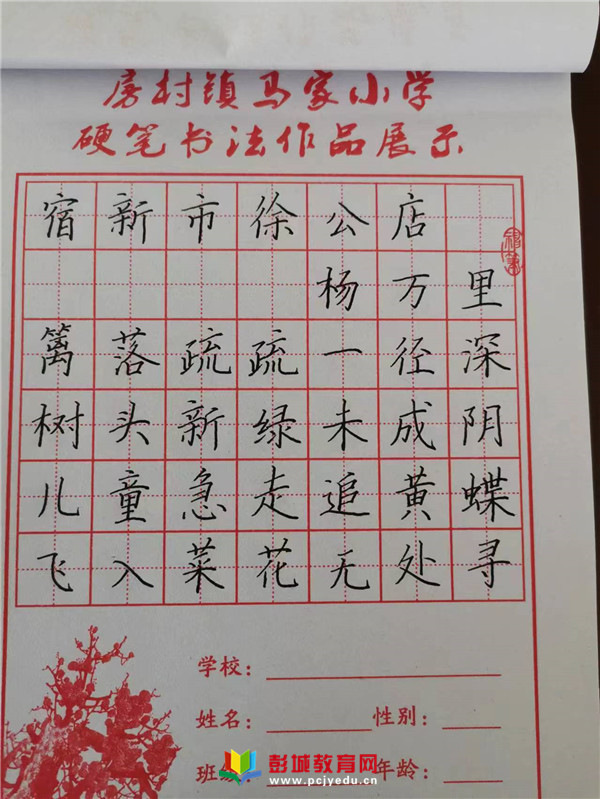 房村镇马家小学
硬笔书法作品展示
宿新市徐公店
杨万里
篱落疏疏一径深
树头新绿未成阴
儿童急走追黄蝶
飞入菜花无处寻
学校：
姓名： 性别：
年龄：
彭城教育网
www.pcjyedu.cn